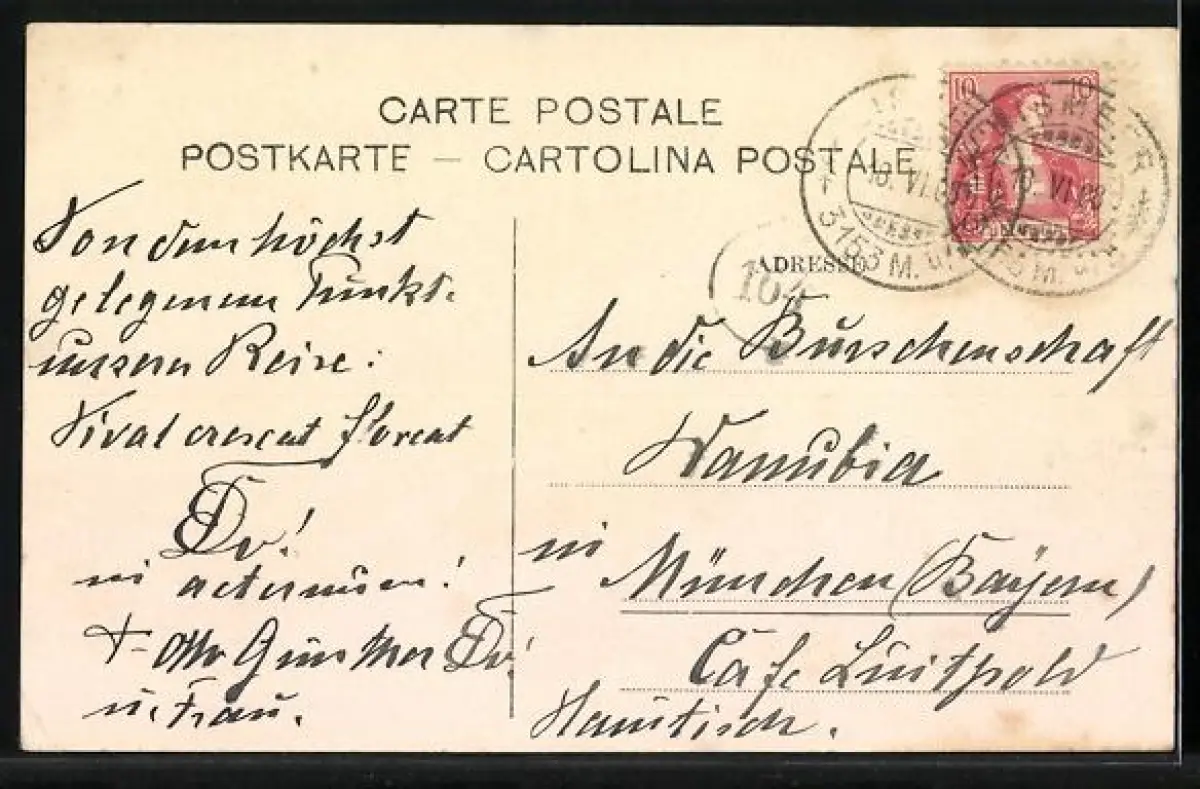 CARTE POSTALE
POSTKARTE — CARTOLINA POSTALE
Von dem höchst
gelegenem Punkt
unserer Reise:
Vivat crescat floreat
in aeternum!
Otto Günther
u. Frau.
10 10
3153 M. ü.
ADRESSE
An die Burschenschaft
Danubia
in München (Bayern)
Café Luitpold
Stammtisch.